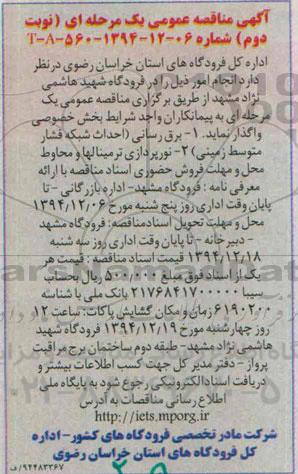 آگهی مناقصه عمومی یک مرحله ای (نوبت
دوم) شماره ۰۶-۱۲-۱۳۹۴-۵۶۰-T-A
اداره کل فرودگاه های استان خراسان رضوی در نظر
دارد انجام امور ذیل را در فرودگاه شهید هاشمی
نژاد مشهد از طریق برگزاری مناقصه عمومی یک
مرحله ای به پیمانکاران واجد شرایط بخش خصوصی
واگذار نماید. ۱- برق رسانی (احداث شبکه فشار
متوسط زمینی) ۲- نورپردازی ترمینالها و محاوط
محل و مهلت فروش حضوری اسناد مناقصه با ارائه
معرفی نامه : فرودگاه مشهد - اداره بازرگانی - تا
پایان وقت اداری روز پنج شنبه مورخ ۱۳۹۴/۱۲/۰۶
محل و مهلت تحویل اسناد مناقصه: فرودگاه مشهد
- دبیرخانه - تا پایان وقت اداری روز سه شنبه
۱۳۹۴/۱۲/۱۸ قیمت اسناد مناقصه : قیمت هر
یک از اسناد فوق مبلغ ۵۰۰,۰۰۰ ریال بحساب
سیبا ۲۱۷۶۸۴۱۷۰۰۰۰۰ بانک ملی با شناسه
۶۱۹۰۲۰۰ زمان و مکان گشایش پاکات: ساعت ۱۲
روز چهارشنبه مورخ ۱۳۹۴/۱۲/۱۹ فرودگاه شهید
هاشمی نژاد مشهد - طبقه دوم ساختمان برج مراقبت
پرواز - دفتر مدیر کل جهت کسب اطلاعات بیشتر و
دریافت اسناد الکترونیکی رجوع شود به پایگاه ملی
اطلاع رسانی مناقصات به آدرس
http://iets.mporg.ir
شرکت مادر تخصصی فرودگاه های کشور - اداره
کل فرودگاه های استان خراسان رضوی
۹۴۴۸۳۳۶۷/ف